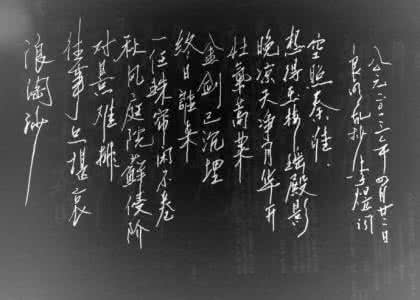 浪淘沙
往事只堪哀
对景难排
秋风庭院蘚侵阶
一任珠帘闲不卷
终日誰来
金剑已沉埋
壮氣蒿莱
晚凉天净月华开
想得玉楼瑶殿影
空照秦淮
乱抄 李煜词
公元二〇年四月廿二日